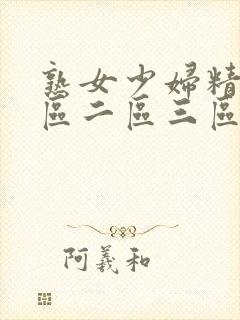 熟女少婦精
區二區三區
阿羲和